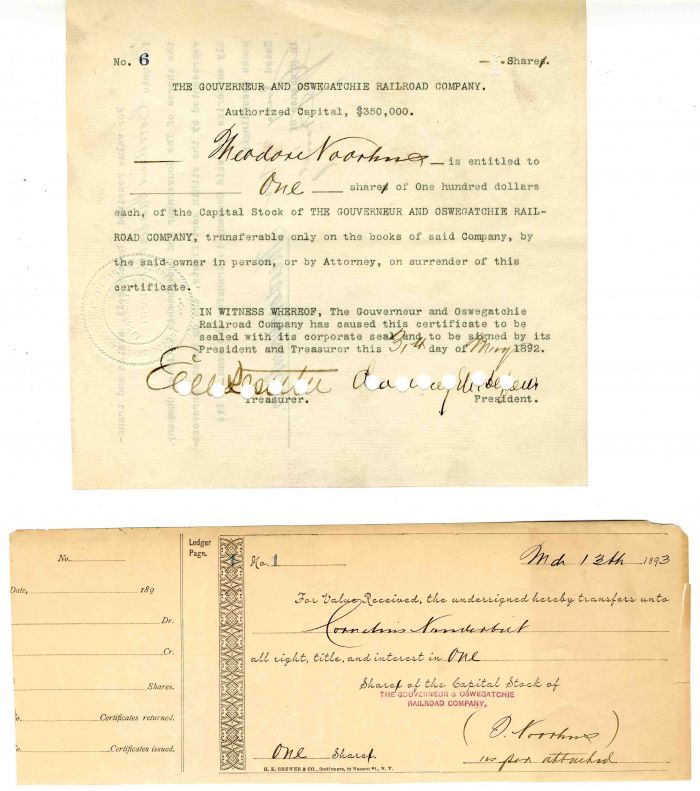 No. 6 —1 Shares.
THE GOUVERNEUR AND OSWEGATCHIE RAILROAD COMPANY.
Authorized Capital, $350,000.
Theodore Voorhees is entitled to
One shares of One hundred dollars
each, of the Capital Stock of THE GOUVERNEUR AND OSWEGATCHIE RAIL-
ROAD COMPANY, transferable only on the books of said Company, by
the said owner in person, or by Attorney, on surrender of this
certificate.
IN WITNESS WHEREOF, The Gouverneur and Oswegatchie
Railroad Company has caused this certificate to be
sealed with its corporate seal and to be signed by its
President and Treasurer this day of May 1892.
Treasurer. President.
No.
Date, 189
Dr.
Cr.
Shares.
Certificates returned.
Certificates issued.
Ledger
Page.
No. 1 Mch 13th 1893
For Value Received, the undersigned hereby transfers unto
Cornelius Vanderbilt
all right, title, and interest in One
Shares of the Capital Stock of
THE GOUVERNEUR & OSWEGATCHIE
RAILROAD COMPANY,
(T. Voorhees)
One Shares. as per attached
H. K. BREWER & CO., Stationers, Nassau St., N. Y.